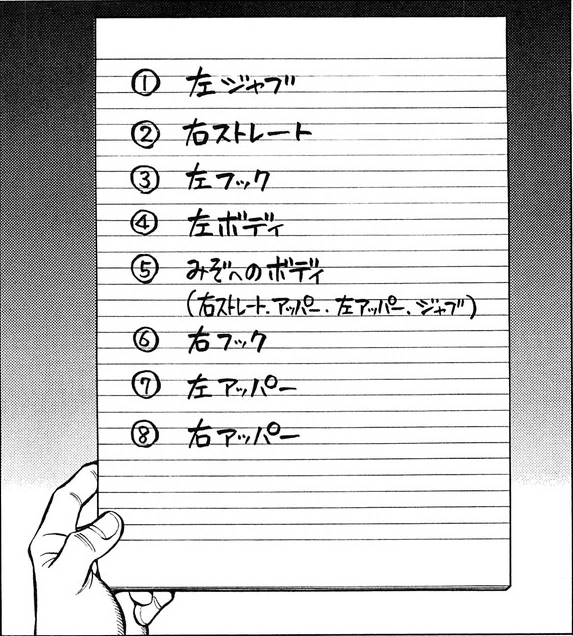 ① 左ジャブ
② 右ストレート
③ 左フック
④ 左ボディ
⑤ みぞへのボディ
(右ストレート.アッパー.左アッパー、ジャブ)
⑥ 右フック
⑦ 左アッパー
⑧ 右アッパー